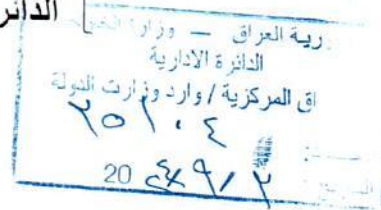 الدائر
ـرية العراق — وزارة الخـ
الدائرة الادارية
اق المركزية / وارد وزارت الدولة
٢٥١٠٤
20 ٩/٢